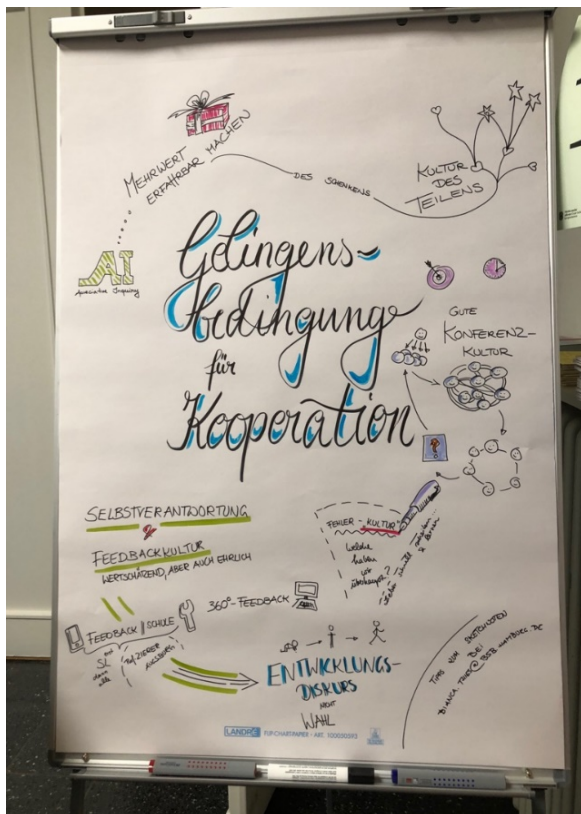 MEHRWERT
ERFAHRBAR MACHEN
DES SCHENKENS
KULTUR
DES
TEILENS
AI
Appreciative Inquiry
Gelingens-
bedingung
für
Kooperation
GUTE
KONFERENZ-
KULTUR
SELBSTVERANTWORTUNG
&
FEEDBACKKULTUR
WERTSCHÄREND, ABER AUCH EHRLICH
FEHLER-KULTUR
welche
haben
wir
überhaupt?
360°-FEEDBACK
FEEDBACK | SCHULE
SL
dann
alle
ENTWICKLUNGS-
DISKURS
NICHT
WAHL
TIPPS ZUM SKETCHNOTEN
BEI
LANDRÉ TOP-CHARTPAPIER - ART. 100050593